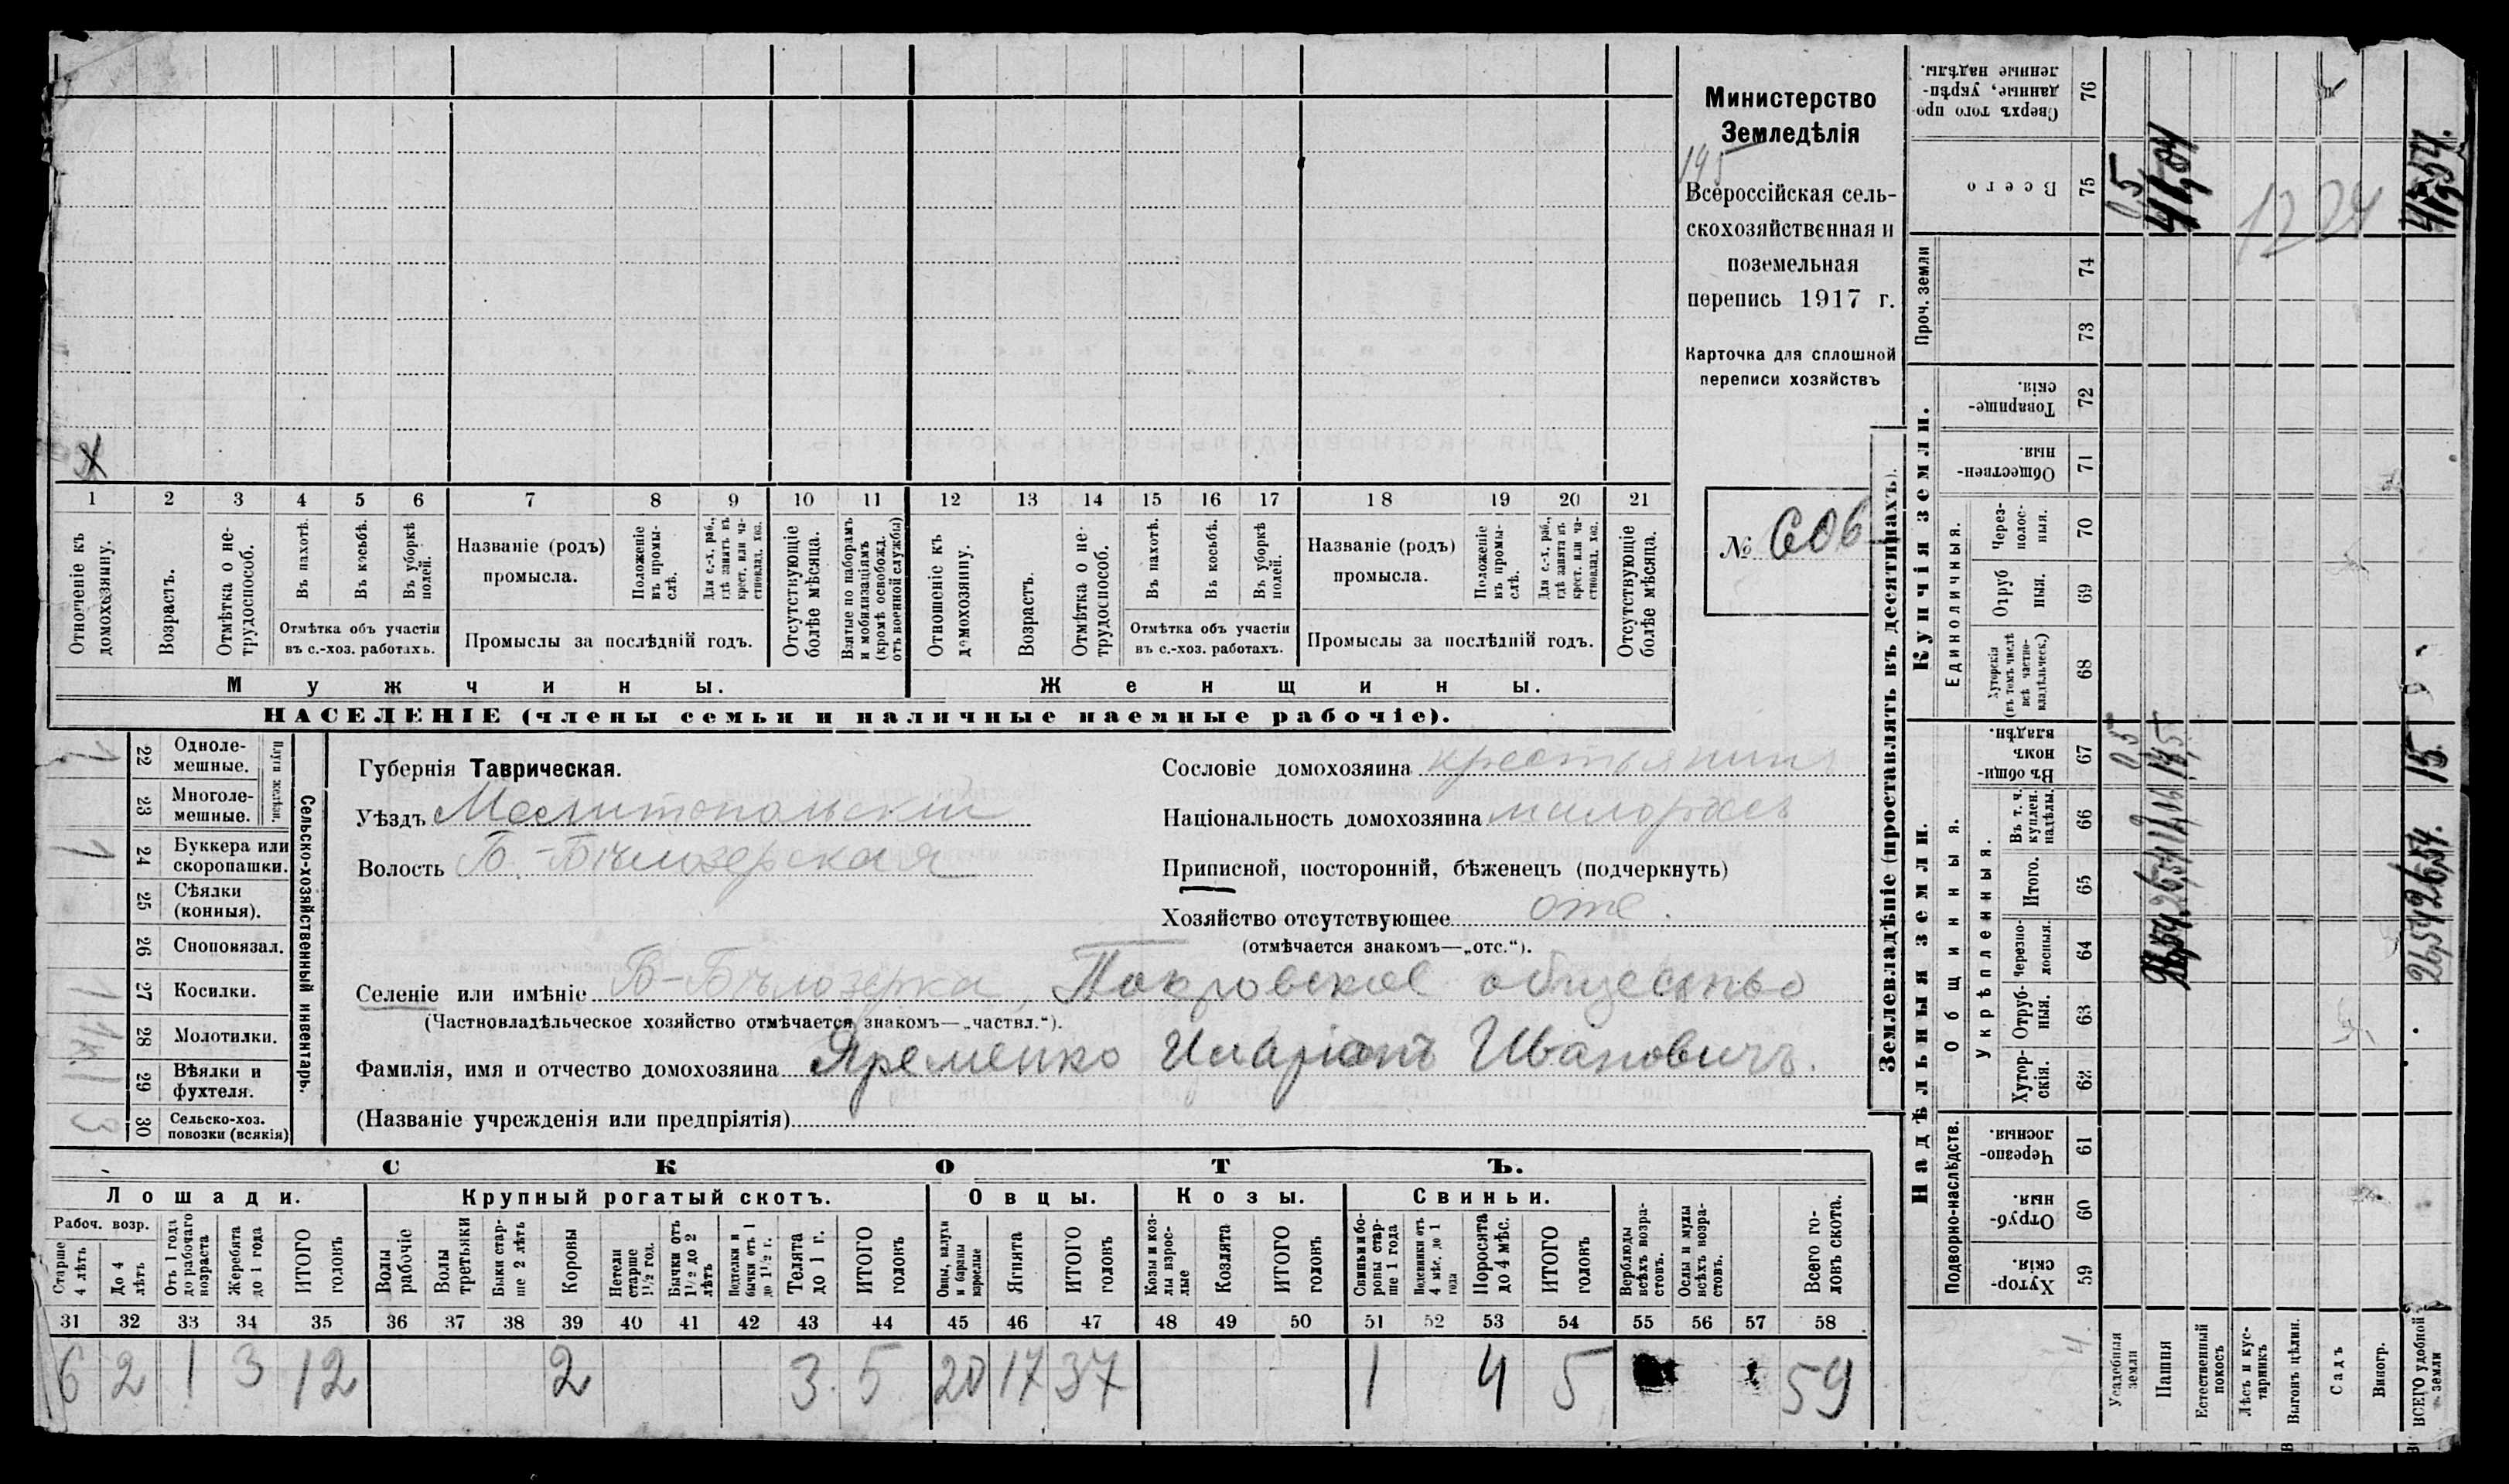 Министерство
Земледѣлія
195
Всероссійская сель-
скохозяйственная и
поземельная
перепись 1917 г.
Карточка для сплошной
переписи хозяйствъ
№ 606
1 2 3 4 5 6 7 8 9 10 11 12 13 14 15 16 17 18 19 20 21
Отношеніе къ домохозяину.
Возрастъ.
Отмѣтка о не-трудоспособ.
Въ пахотѣ.
Въ косьбѣ.
Въ уборкѣ полей.
Отмѣтка объ участіи
въ с.-хоз. работахъ.
Названіе (родъ)
промысла.
Положеніе въ промы-слѣ.
Для с.-х. раб., гдѣ занятъ въ крест. или ча-стновлад. хоз.
Промыслы за послѣдній годъ.
Отсутствующіе болѣе мѣсяца.
Взятые по наборамъ и мобилизаціямъ (кромѣ освобожд. отъ военной службы)
Отношеніе къ домохозяину.
Возрастъ.
Отмѣтка о не-трудоспособ.
Въ пахотѣ.
Въ косьбѣ.
Въ уборкѣ полей.
Отмѣтка объ участіи
въ с.-хоз. работахъ.
Названіе (родъ)
промысла.
Положеніе въ промы-слѣ.
Для с.-х. раб., гдѣ занятъ въ крест. или ча-стновлад. хоз.
Промыслы за послѣдній годъ.
Отсутствующіе болѣе мѣсяца.
Мужчины.
Женщины.
НАСЕЛЕНІЕ (члены семьи и наличные наемные рабочіе).
Сельско-хозяйственный инвентарь.
Плуги желѣзн.
22 Одноле-мешные. 1
23 Многоле-мешные.
24 Буккера или скоропашки. 1
25 Сѣялки (конныя).
26 Сноповязал.
27 Косилки. 1
28 Молотилки. 1к.
29 Вѣялки и фухтеля. 1
30 Сельско-хоз. повозки (всякія) 3
Губернія Таврическая.
Уѣздъ Мелитопольскій
Волость Б.-Бѣлозерская
Сословіе домохозяина крестьянинъ
Національность домохозяина малороссъ
Приписной, посторонній, бѣженецъ (подчеркнуть)
Хозяйство отсутствующее
(отмѣчается знакомъ—„отс.“).
Селеніе или имѣніе Б-Бѣлозерка, Покровское общество
(Частновладѣльческое хозяйство отмѣчается знакомъ—„частвл.“).
Фамилія, имя и отчество домохозяина Яременко Иларіонъ Ивановичъ.
(Названіе учрежденія или предпріятія)
СКОТЪ.
Лошади.
Крупный рогатый скотъ.
Овцы.
Козы.
Свиньи.
Рабоч. возр.
Старше 4 лѣтъ
До 4 лѣтъ
Отъ 1 года до рабочаго возраста
Жеребята до 1 года
ИТОГО головъ
Волы рабочіе
Волы третьяки
Быки стар-ше 2 лѣтъ
Коровы
Нетели старше 1½ год.
Бычки отъ 1½ до 2 лѣтъ
Подтелки и бычки отъ 1 до 1½ г.
Телята до 1 г.
ИТОГО головъ
Овцы, валухи и бараны взрослые
Ягнята
ИТОГО головъ
Козы и коз-лы взрос-лые
Козлята
ИТОГО головъ
Свиньи и бо-ровы стар-ше 1 года
Подсвинки отъ 4 мѣс. до 1 года
Поросята до 4 мѣс.
ИТОГО головъ
Верблюды всѣхъ возра-стовъ.
Ослы и мулы всѣхъ возра-стовъ.
Всего го-ловъ скота.
31 32 33 34 35 36 37 38 39 40 41 42 43 44 45 46 47 48 49 50 51 52 53 54 55 56 57 58
6 2 1 3 12 2 3 5 20 17 37 1 4 5 59
Землевладѣніе (проставлять въ десятинахъ).
Надѣльныя земли.
Купчія земли.
Проч. земли
Подворно-наслѣдств.
Общинныя.
Укрѣпленныя.
Единоличныя.
Хутор-скія. 59
Отруб-ныя. 60
Черезпо-лосныя. 61
Хутор-скія. 62
Отруб-ныя. 63
Черезпо-лосныя. 64
Итого. 65
Въ т. ч. куплен. надѣлы. 66
Въ общи-номъ владѣн. 67
Хуторскія (въ томъ числѣ всѣ частно-владѣльческ.) 68
Отруб ныя. 69
Через-полос-ныя. 70
Обществен-ныя. 71
Товарище-скія. 72
73
74
Всего 75
Сверхъ того про-данные, укрѣп-ленные надѣлы. 76
Усадебныя земли
Пашня
Естественный покосъ
Лѣсъ и кус-тарникъ
Выгонъ цѣлин.
Садъ
Виногр.
ВСЕГО удобной земли
05
05
14,5
1224
26,54
26,54
15
41,54